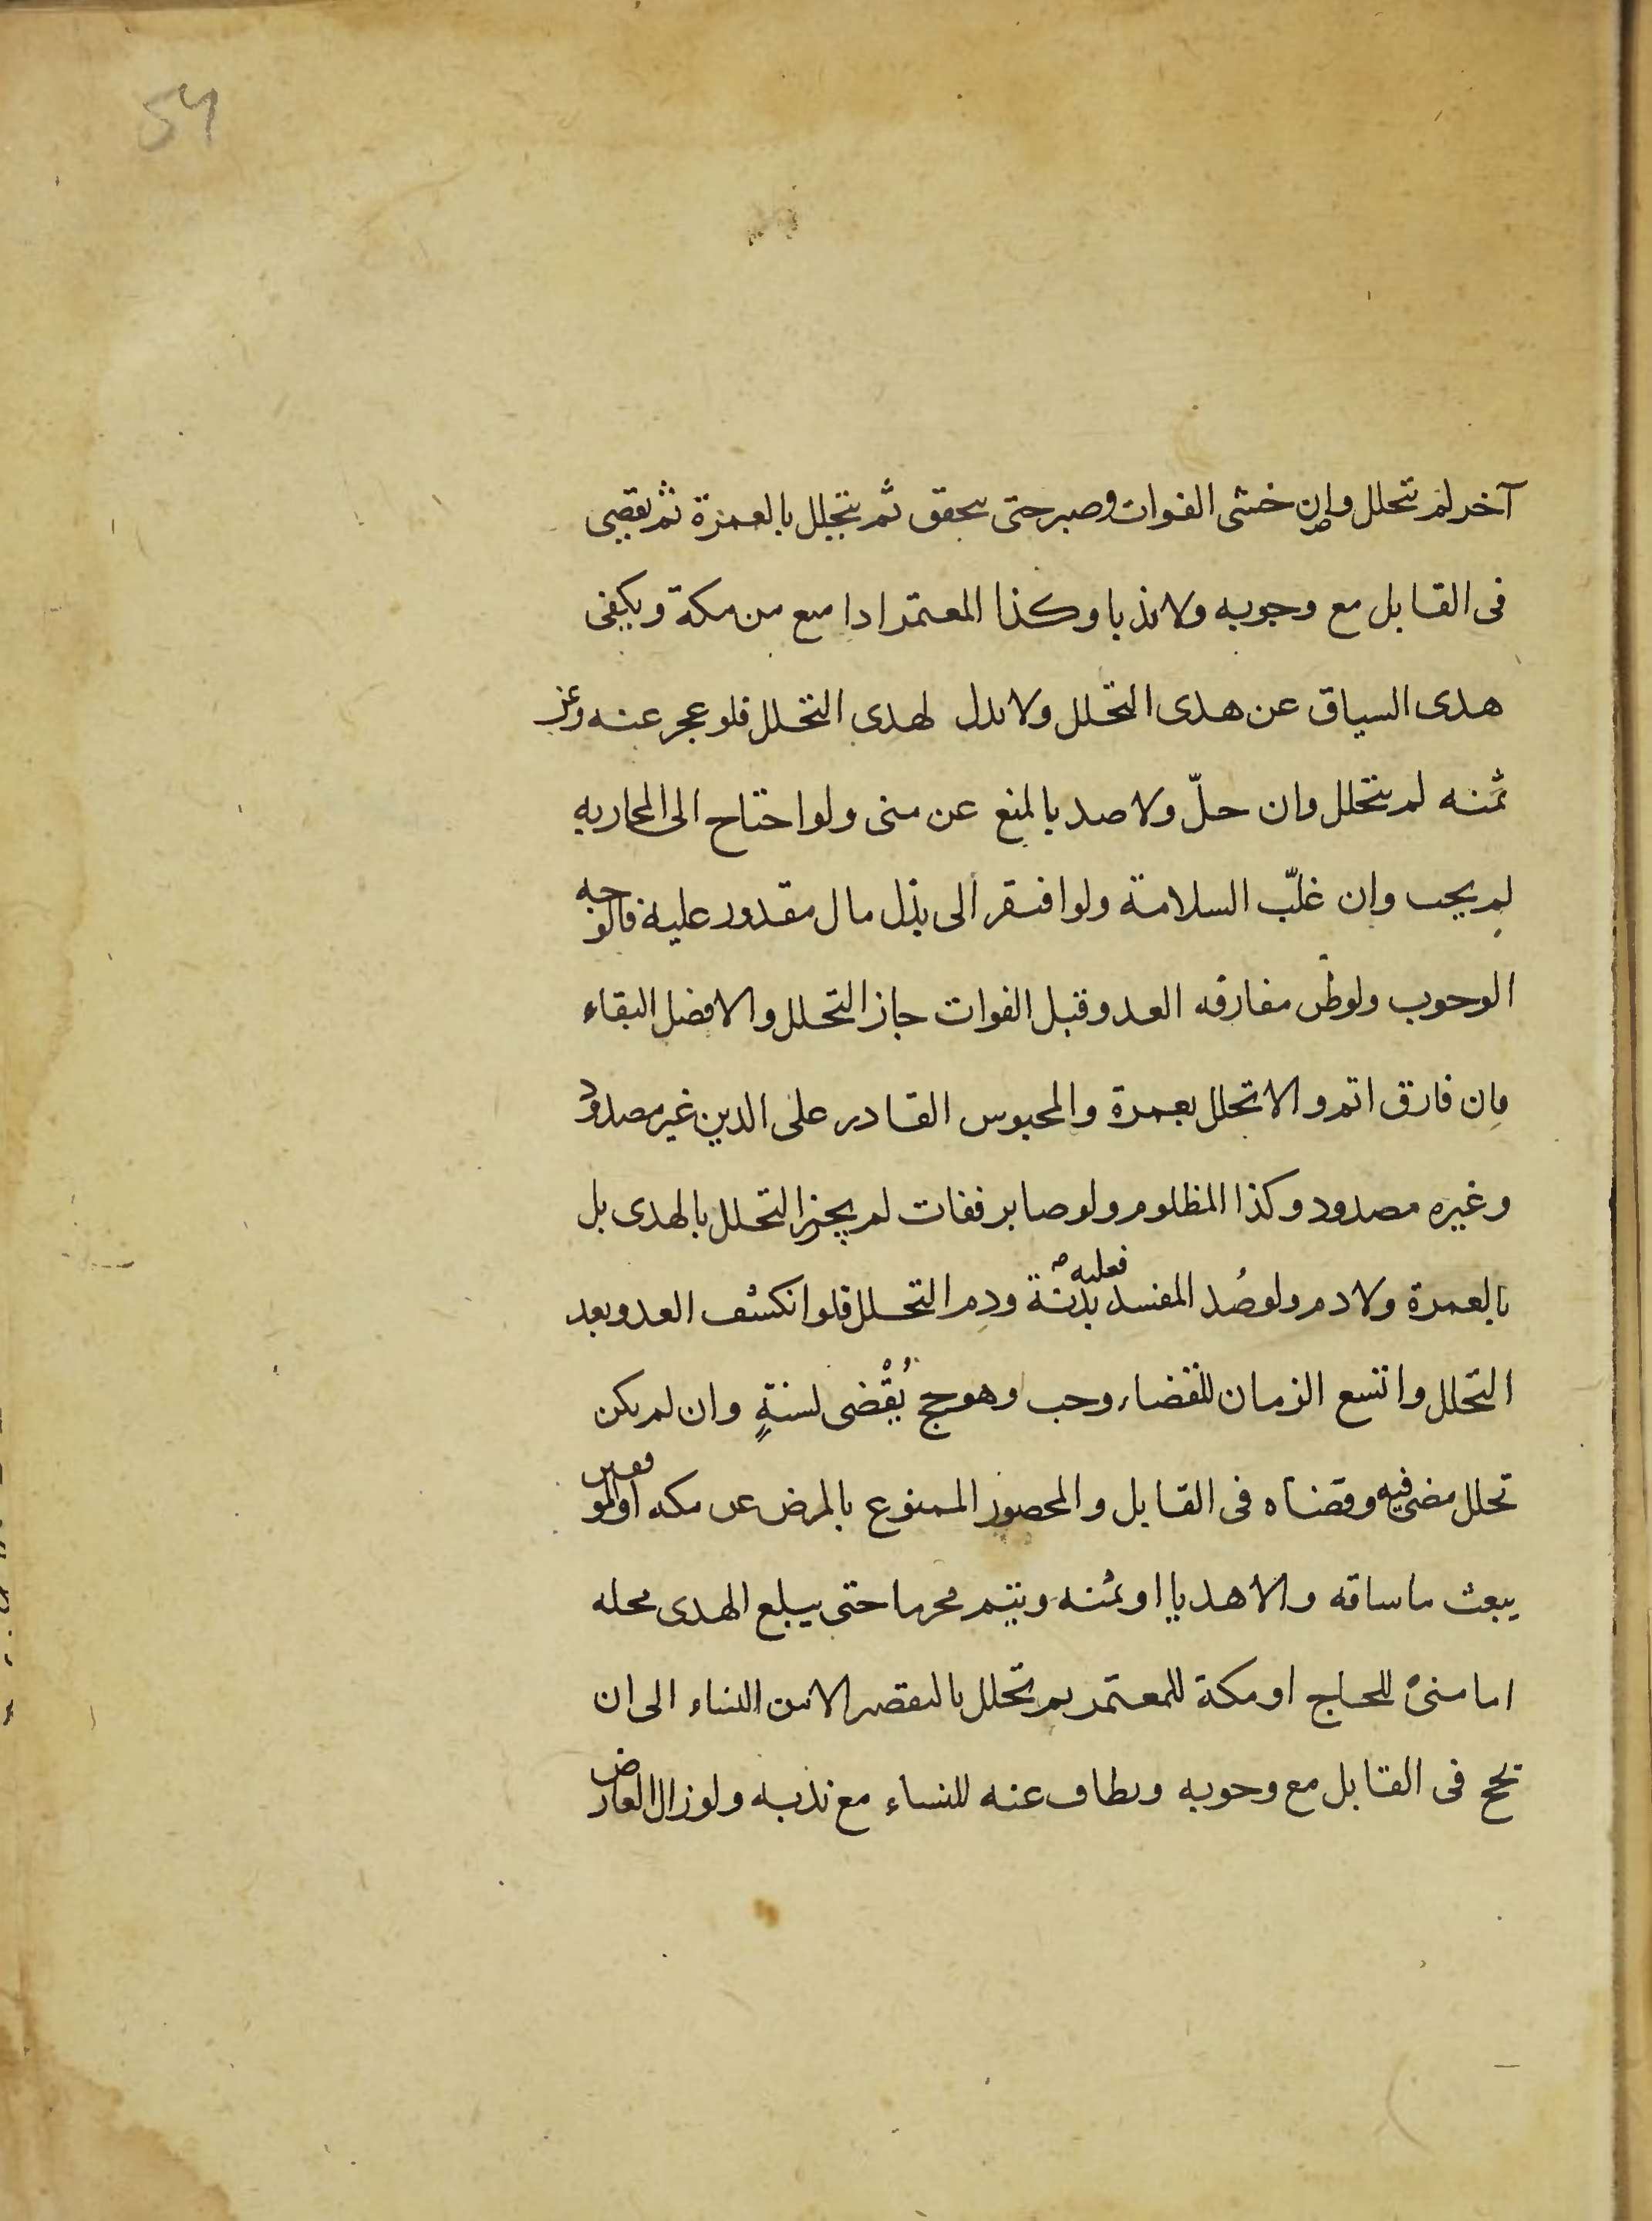 54
آخر لم تتحلل وان خشى الفوات وصبر حتى يتحقق ثم يتحلل بالعمرة ثم يقضى
فى القابل مع وجوبه ولا ندبا وكذا المعتمر اذا منع من مكة ويكفى
هدى السياق عن هدى التحلل ولا بدل لهدى التحلل فلو عجز عنه وعن
ثمنه لم يتحلل وان حلّ ولا صد بالمنع عن منى ولو احتاج الى المحاربه
لم يجب وان غلّب السلامة ولو افتقر الى بذل مال مقدور عليه فالوجه
الوجوب ولو ظن مفارقه العدو قبل الفوات جاز التحلل والافضل البقاء
فان فارق اتم والا تحلل بعمرة والمحبوس القادر على الدين غير مصدود
وغيره مصدود وكذا المظلوم ولو صابر ففات لم يجز التحلل بالهدى بل
بالعمرة ولا دم ولو صُد المفسد فعليه بدنة ودم التحلل فلو انكشف العدو بعد
التحلل واتسع الزمان للقضاء وجب وهو حج يُقْضى لسنةٍ وان لم يكن
تحلل مضى فيه وقضاه فى القابل والمحصور الممنوع بالمرض عن مكه او الموقفين
يبعث ما ساقه والا هديا او ثمنه ويتم محرما حتى يبلغ الهدى محله
اما منىً للحاج او مكة للمعتمر ثم تحلل بالتقصير الا من النساء الى ان
يحج فى القابل مع وجوبه ويطاف عنه للنساء مع ندبه ولو زال العارض